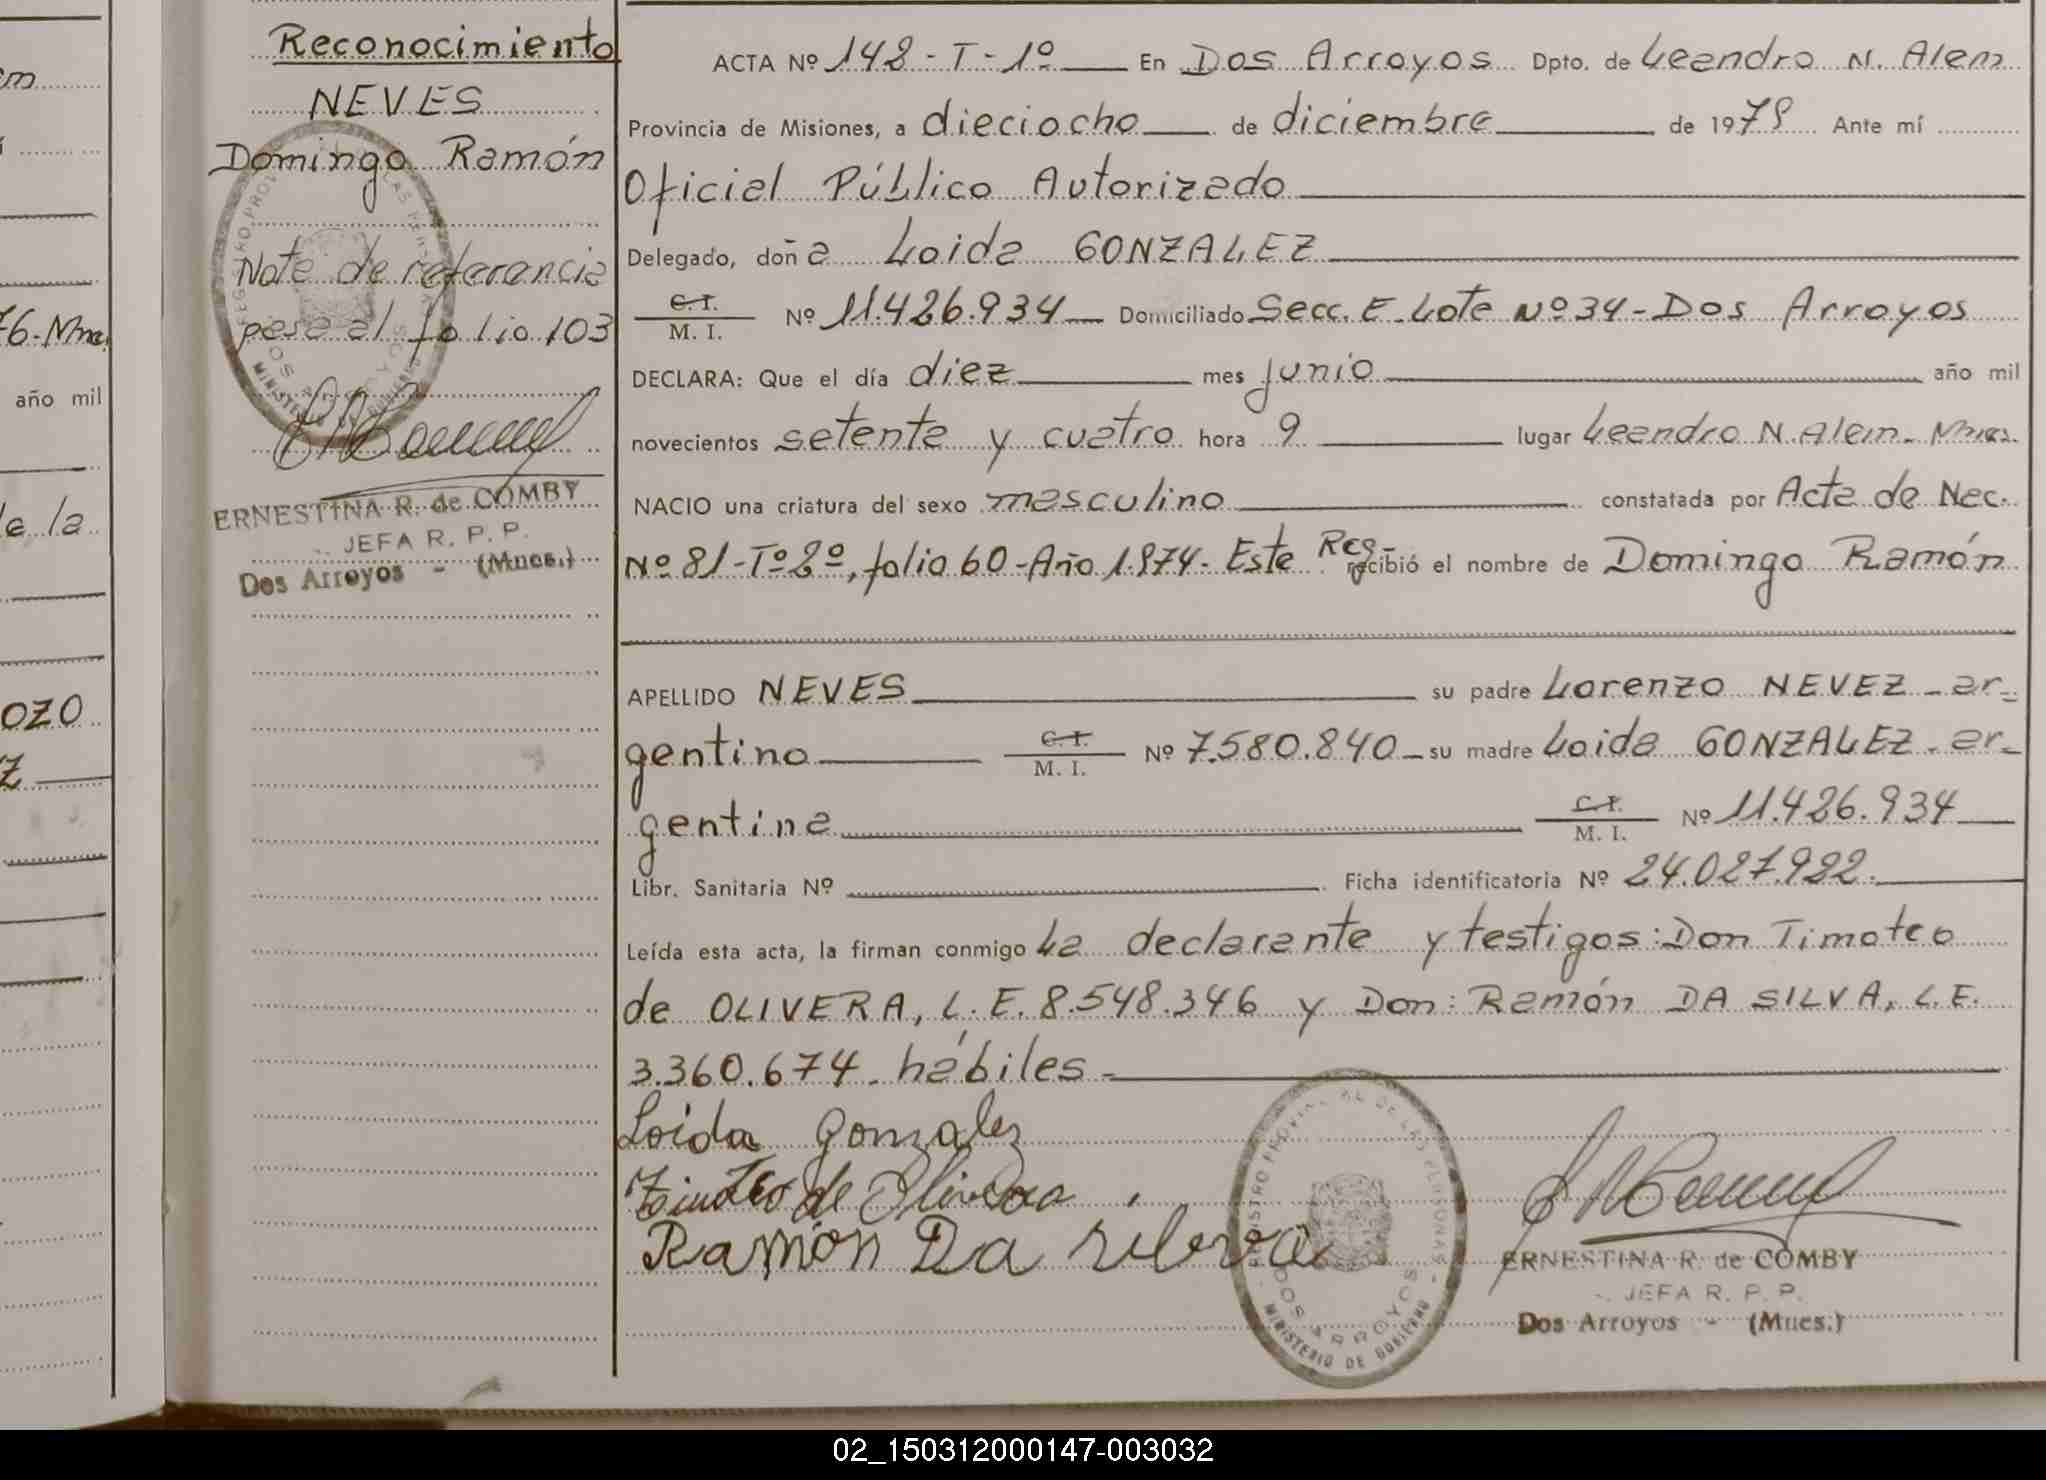 Reconocimiento
NEVES
Domingo Ramón
Nota de referencia
pasa al folio 103
ERNESTINA R. de COMBY
JEFA R. P. P.
Dos Arroyos - (Mnes.)
ACTA Nº 148 - T - 1º En Dos Arroyos Dpto. de Leandro N. Alem
Provincia de Misiones, a dieciocho de diciembre de 1978 Ante mí
Oficial Público Autorizado
Delegado, doña Loida GONZALEZ
C. I.
M. I. Nº 11.426.934 Domiciliado Secc. E Lote Nº 34 - Dos Arroyos
DECLARA: Que el día diez mes junio año mil
novecientos setenta y cuatro hora 9 lugar Leandro N. Alem - Mnes.
NACIO una criatura del sexo masculino constatada por Acta de Nac.
Nº 81 - Tº 2º, folio 60 - Año 1.974 - Este Reg- recibió el nombre de Domingo Ramón
APELLIDO NEVES su padre Lorenzo NEVEZ - ar-
gentino C. I. M. I. Nº 7.580.840 - su madre Loida GONZALEZ - ar-
gentina C. I. M. I. Nº 11.426.934
Libr. Sanitaria Nº Ficha identificatoria Nº 24.027.922.
Leída esta acta, la firman conmigo La declarante y testigos: Don Timoteo
de OLIVERA, L. E. 8.548.346 y Don: Ramón DA SILVA, L. E.
3.360.674 - hábiles -
Loida Gonzalez
Timoteo de Olivera
Ramón Da silva
REGISTRO PROVINCIAL DE LAS PERSONAS
DOS ARROYOS
MINISTERIO DE GOBIERNO
ERNESTINA R. de COMBY
JEFA R. P. P.
Dos Arroyos - (Mnes.)
76-Mnes.
año mil
de la
OZO
Z
02_150312000147-003032